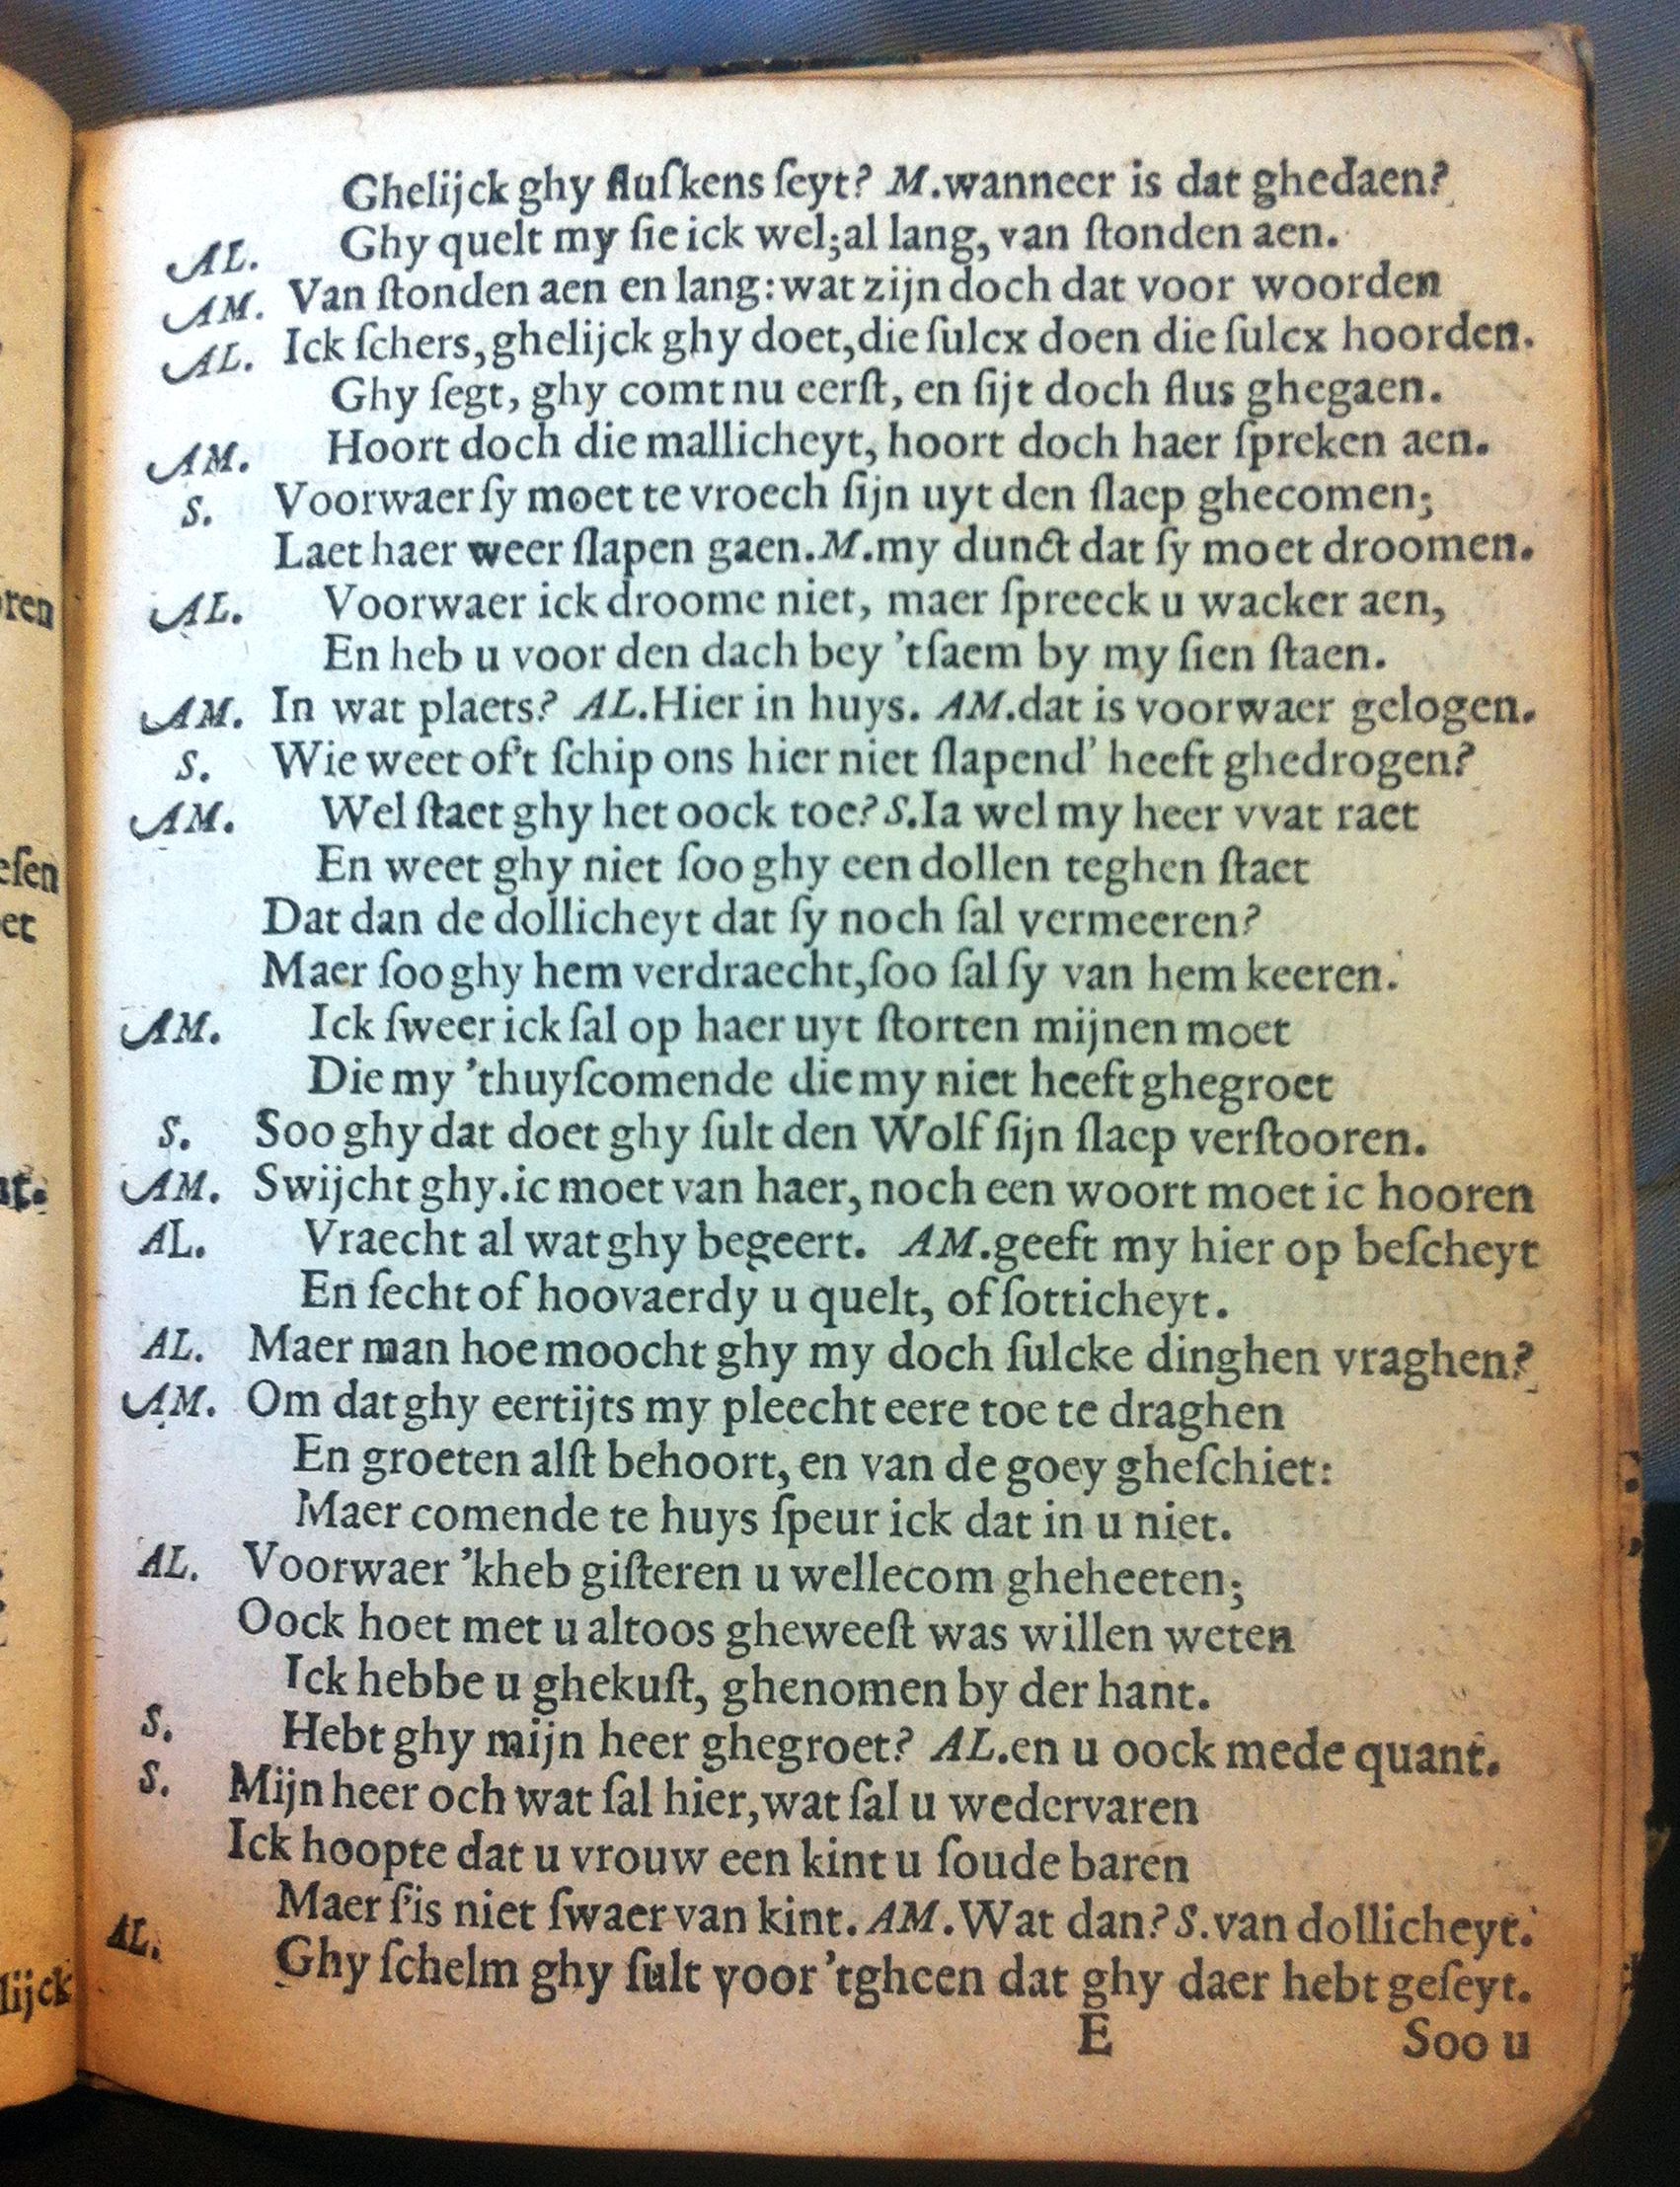 Ghelijck ghy fluſkens ſeyt? M.wanneer is dat ghedaen?
AL. Ghy quelt my ſie ick wel;al lang, van ſtonden aen.
AM. Van ſtonden aen en lang:wat zijn doch dat voor woorden
AL. Ick ſchers,ghelijck ghy doet,die ſulcx doen die ſulcx hoorden.
Ghy ſegt, ghy comt nu eerſt, en ſijt doch flus ghegaen.
AM. Hoort doch die mallicheyt, hoort doch haer ſpreken aen.
S. Voorwaer ſy moet te vroech ſijn uyt den ſlaep ghecomen;
Laet haer weer ſlapen gaen.M.my dunct dat ſy moet droomen.
AL. Voorwaer ick droome niet, maer ſpreeck u wacker aen,
En heb u voor den dach bey 'tſaem by my ſien ſtaen.
AM. In wat plaets? AL.Hier in huys. AM.dat is voorwaer gelogen.
S. Wie weet of't ſchip ons hier niet ſlapend' heeft ghedrogen?
AM. Wel ſtaet ghy het oock toe? S.Ia wel my heer vvat raet
En weet ghy niet ſoo ghy een dollen teghen ſtaet
Dat dan de dollicheyt dat ſy noch ſal vermeeren?
Maer ſoo ghy hem verdraecht,ſoo ſal ſy van hem keeren.
AM. Ick ſweer ick ſal op haer uyt ſtorten mijnen moet
Die my 'thuyſcomende die my niet heeft ghegroet
S. Soo ghy dat doet ghy ſult den Wolf ſijn ſlaep verſtooren.
AM. Swijcht ghy.ic moet van haer, noch een woort moet ic hooren
AL. Vraecht al wat ghy begeert. AM.geeft my hier op beſcheyt
En ſecht of hoovaerdy u quelt, of ſotticheyt.
AL. Maer man hoe moocht ghy my doch ſulcke dinghen vraghen?
AM. Om dat ghy eertijts my pleecht eere toe te draghen
En groeten alſt behoort, en van de goey gheſchiet:
Maer comende te huys ſpeur ick dat in u niet.
AL. Voorwaer 'kheb giſteren u wellecom gheheeten;
Oock hoet met u altoos gheweeſt was willen weten
Ick hebbe u ghekuſt, ghenomen by der hant.
S. Hebt ghy mijn heer ghegroet? AL.en u oock mede quant.
S. Mijn heer och wat ſal hier,wat ſal u wedervaren
Ick hoopte dat u vrouw een kint u ſoude baren
Maer ſ'is niet ſwaer van kint. AM.Wat dan? S.van dollicheyt.
AL. Ghy ſchelm ghy ſult voor 'tgheen dat ghy daer hebt geſeyt.
E Soo u
ren
eſen
et
lijck